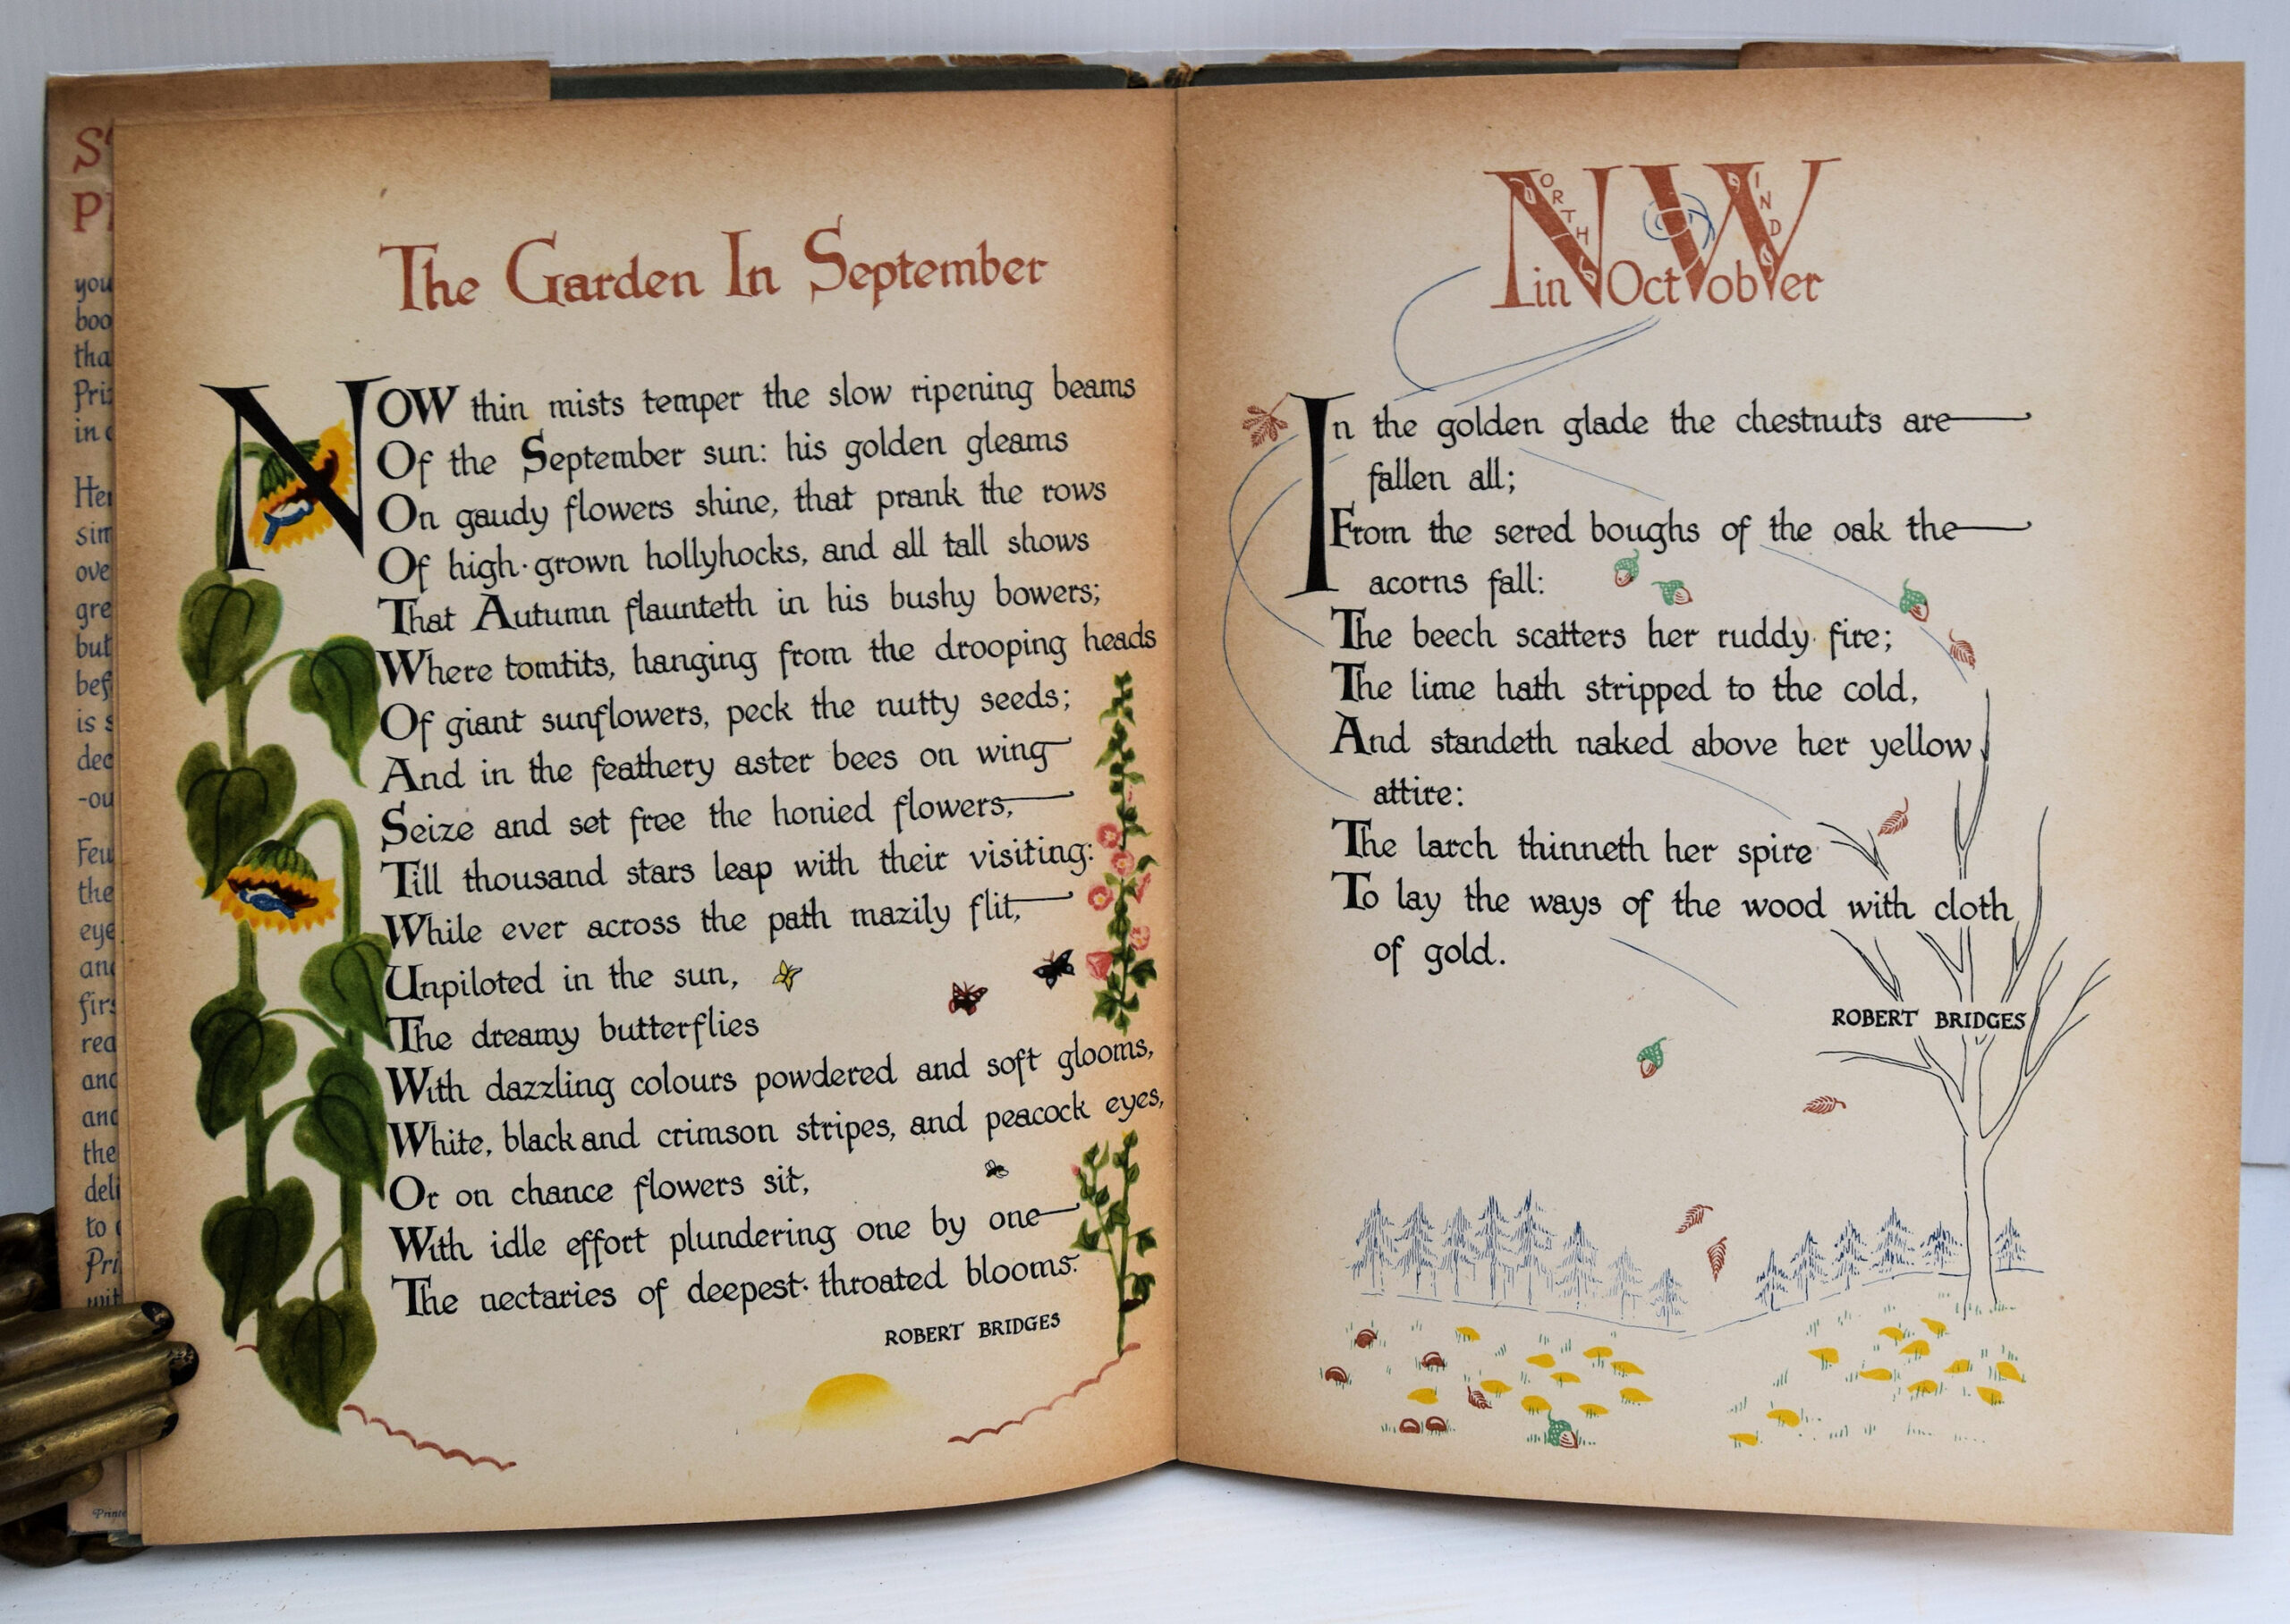 S
P
you
boo
tha
Pri
in
sim
ove
gre
but
bef
is s
dec
-ou
Feu
the
eye
and
firs
rea
and
and
the
deli
to
Pri
wit
The Garden In September
NOW thin mists temper the slow ripening beams
Of the September sun: his golden gleams
On gaudy flowers shine, that prank the rows
Of high-grown hollyhocks, and all tall shows
That Autumn flaunteth in his bushy bowers;
Where tomtits, hanging from the drooping heads
Of giant sunflowers, peck the nutty seeds;
And in the feathery aster bees on wing
Seize and set free the honied flowers,
Till thousand stars leap with their visiting:
While ever across the path mazily flit,
Unpiloted in the sun,
The dreamy butterflies
With dazzling colours powdered and soft glooms,
White, black and crimson stripes, and peacock eyes,
Or on chance flowers sit,
With idle effort plundering one by one
The nectaries of deepest-throated blooms.
ROBERT BRIDGES
NORTH WIND
in October
In the golden glade the chestnuts are
fallen all;
From the sered boughs of the oak the
acorns fall:
The beech scatters her ruddy fire;
The lime hath stripped to the cold,
And standeth naked above her yellow
attire:
The larch thinneth her spire
To lay the ways of the wood with cloth
of gold.
ROBERT BRIDGES